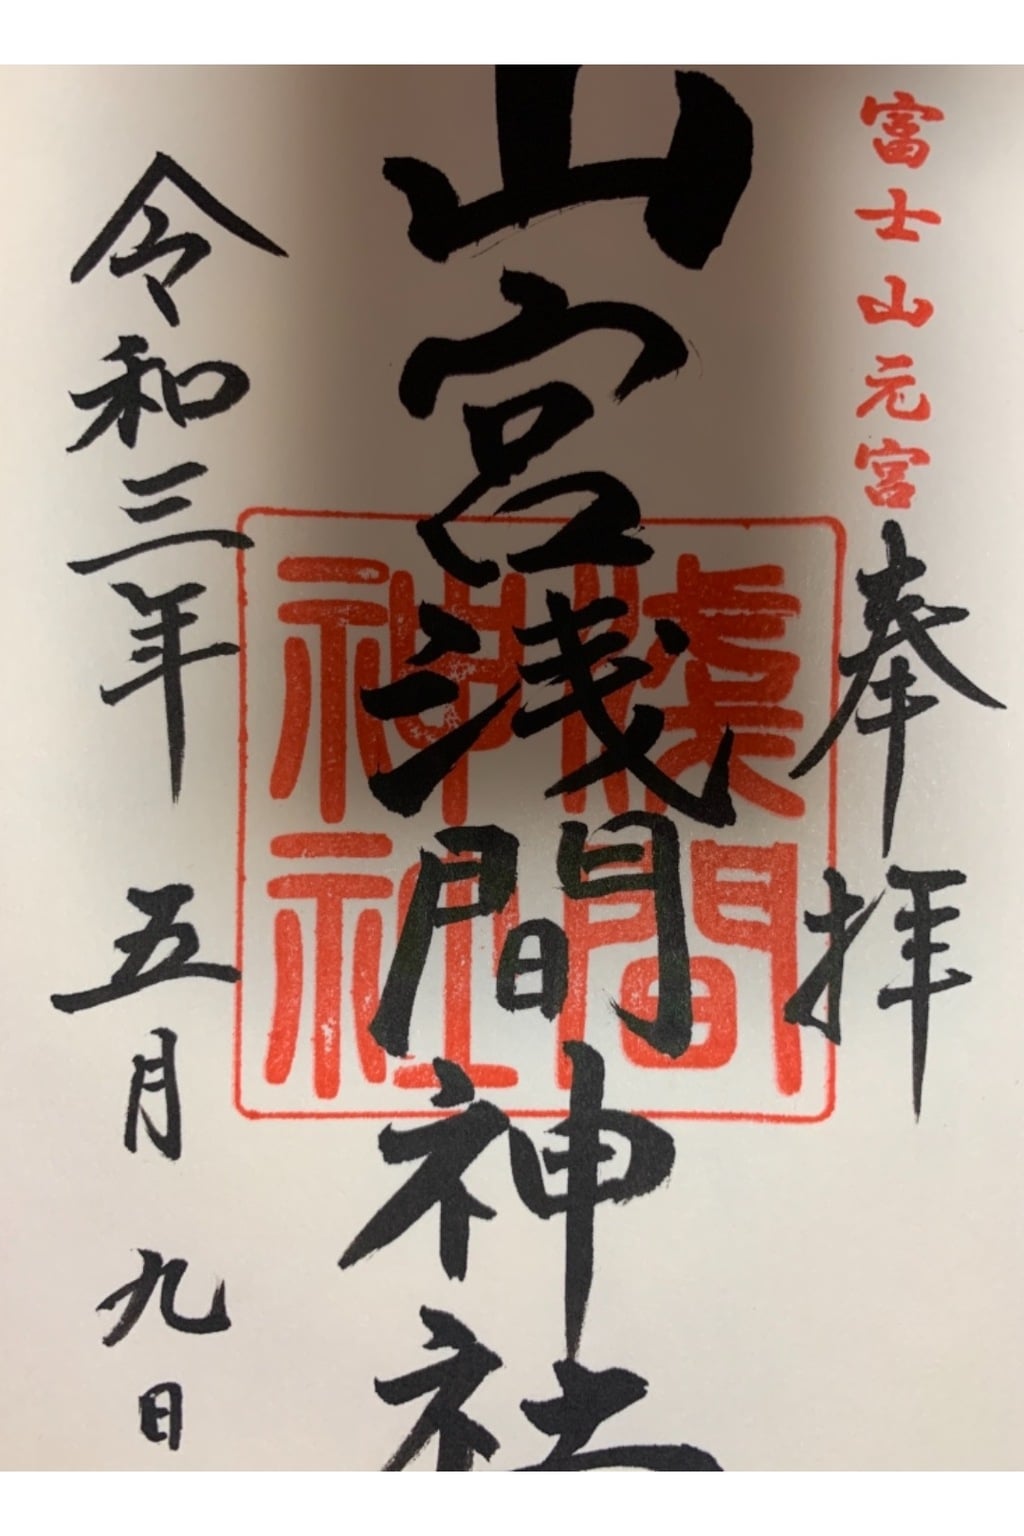 富士山元宮
奉拝
山宮浅間神社
淺間
神社
令和三年五月九日